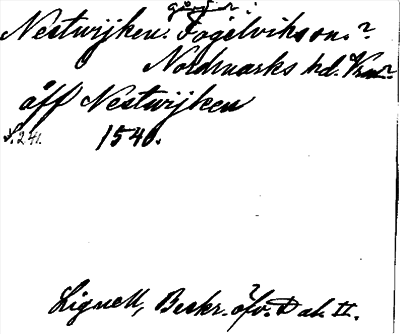 Nestwijken. Fogelvikson.?
Nordmarks hd. Vrm?
åff Nestwijken
S. 241. 1540.
Lignell, Beskr. öfv. Dal. II.